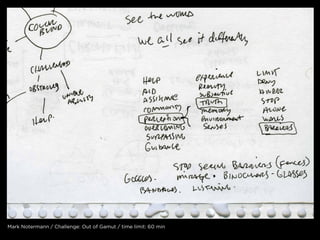 COLOR BLIND
See the world
We all see it differently
CHALLENGED
OBSTACLES
UNIQUE ABILITY
HELP.
HELP
AID
ASSISTANCE
COMMUNITY
PERCEPTION
OVERCOMING
SURPASSING
GUIDANCE
experience
Reality
Subjective
TRUTH
Memory
Environment
Senses
LIMIT
DENY
HINDER
STOP
ALONE
WALLS
BARRIERS
STOP SEEING BARRIERS (FENCES)
GOGGLES. mirage. BINOCULARS - GLASSES
BANDAGES. LISTENING.
Mark Notermann / Challenge: Out of Gamut / time limit: 60 min